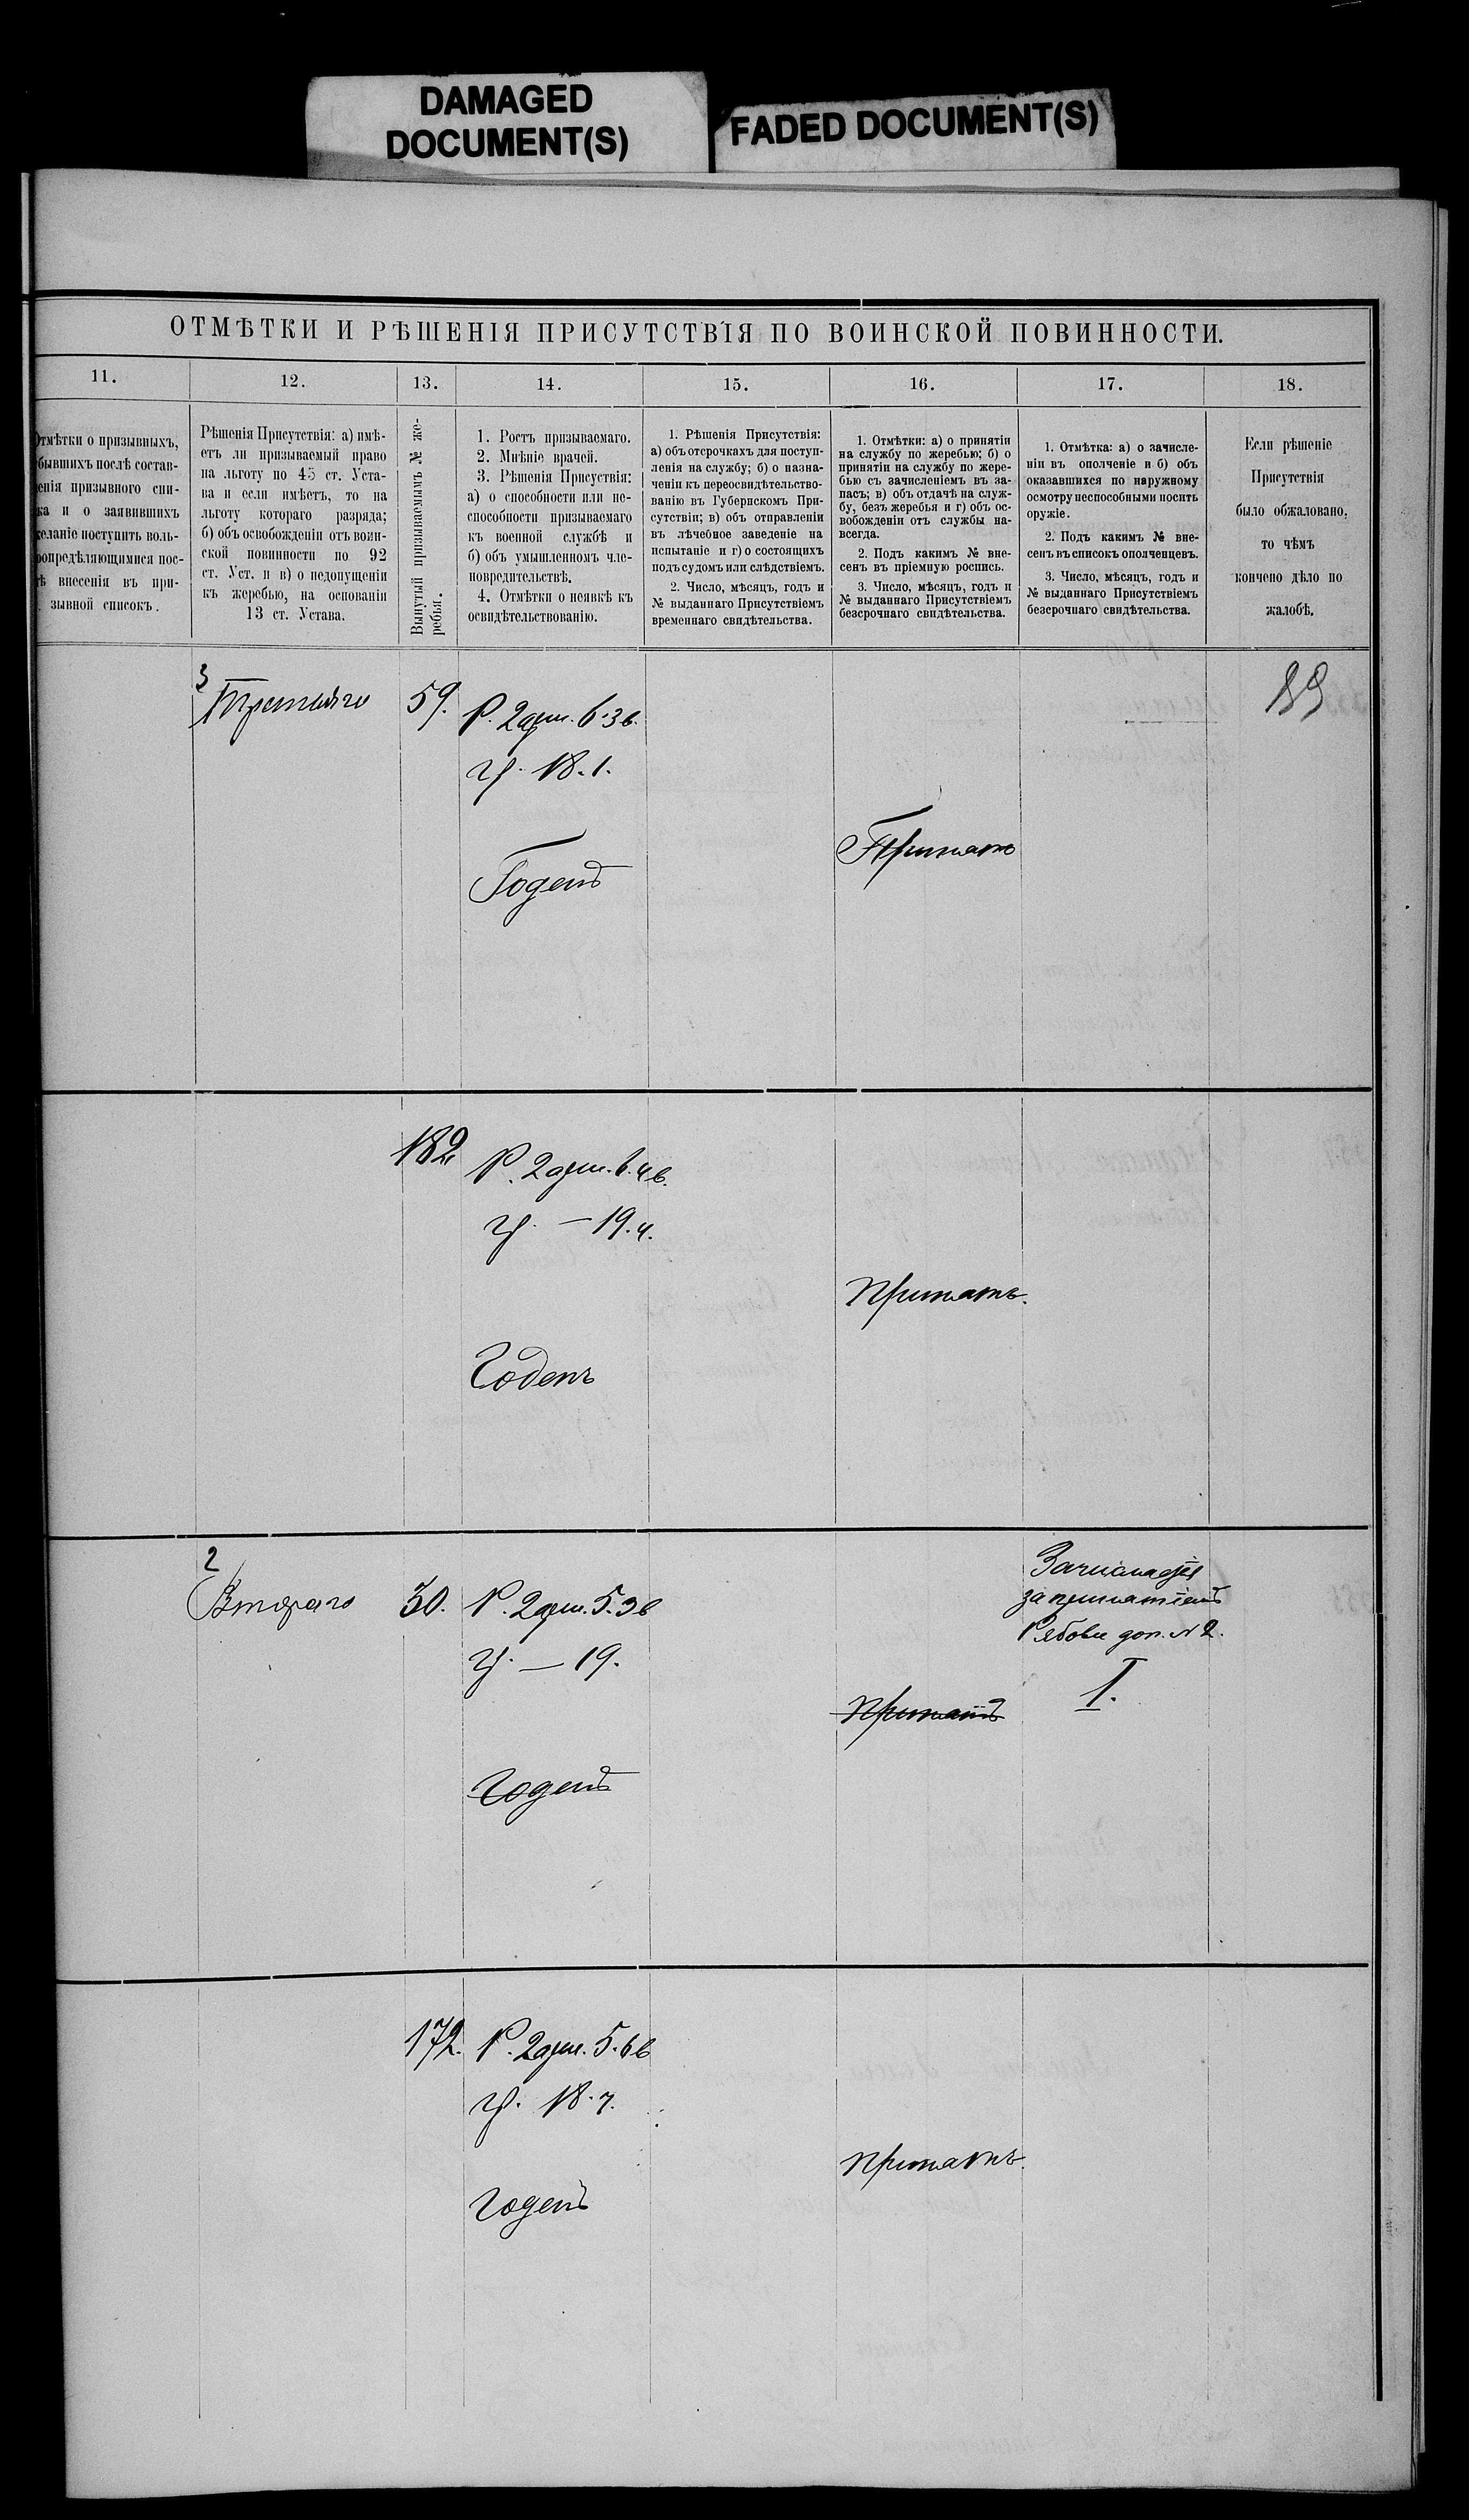 DAMAGED
DOCUMENT(S)
FADED DOCUMENT(S)
ОТМѢТКИ И РѢШЕНІЯ ПРИСУТСТВІЯ ПО ВОИНСКОЙ ПОВИННОСТИ.
11.
12.
13.
14.
15.
16.
17.
18.
Отмѣтки о призывныхъ,
бывшихъ послѣ состав-
енія призывного спи-
ка и о заявившихъ
желаніе поступить воль-
опредѣляющимися пос-
ѣ внесенія въ при-
зывной списокъ.
Рѣшенія Присутствія: а) имѣ-
етъ ли призываемый право
на льготу по 45 ст. Уста-
ва и если имѣетъ, то на
льготу котораго разряда;
б) объ освобожденіи отъ воин-
ской повинности по 92
ст. Уст. и в) о недопущеніи
къ жеребью, на основаніи
13 ст. Устава.
Вынутый призываемымъ № же-
ребья.
1. Ростъ призываемаго.
2. Мнѣніе врачей.
3. Рѣшенія Присуствія:
а) о способности или не-
способности призываемаго
къ военной службѣ и
б) объ умышленномъ чле-
новредительствѣ.
4. Отмѣтки о неявкѣ къ
освидѣтельствованію.
1. Рѣшенія Присутствія:
а) объ отсрочкахъ для поступ-
ленія на службу; б) о назна-
ченіи къ переосвидѣтельство-
ванію въ Губернскомъ При-
сутствіи; в) объ отправленіи
въ лѣчебное заведеніе на
испытаніе и г) о состоящихъ
подъ судомъ или слѣдствіемъ.
2. Число, мѣсяцъ, годъ и
№ выданнаго Присутствіемъ
временнаго свидѣтельства.
1. Отмѣтки: а) о принятіи
на службу по жеребью; б) о
принятіи на службу по жере-
бью съ зачисленіемъ въ за-
пасъ; в) объ отдачѣ на служ-
бу, безъ жеребья и г) объ ос-
вобожденіи отъ службы на-
всегда.
2. Подъ какимъ № вне-
сенъ въ пріемную роспись.
3. Число, мѣсяцъ, годъ и
№ выданнаго Присутствіемъ
безсрочнаго свидѣтельства.
1. Отмѣтка: а) о зачисле-
ніи въ ополченіе и б) объ
оказавшихся по наружному
осмотру неспособными носить
оружіе.
2. Подъ какимъ № вне-
сенъ въ списокъ ополченцевъ.
3. Число, мѣсяцъ, годъ и
№ выданнаго Присутствіемъ
безсрочнаго свидѣтельства.
Если рѣшеніе
Присутствія
было обжаловано,
то чѣмъ
кончено дѣло по
жалобѣ.
3
Третьяго
59.
Р. 2 арш. 6.3 в.
гр. 18.1.
Годенъ
Принятъ
182
Р. 2 арш. 6.4 в.
гр. — 19.4.
Годенъ
Принятъ.
2
Втораго
30.
Р. 2 арш. 5.3 в
гр. — 19.
Годенъ
Принятъ
за принятіемъ
доп. № 2.
I.
172.
Р. 2 арш. 5.6 в
гр. 18.7.
Годенъ
Принятъ.